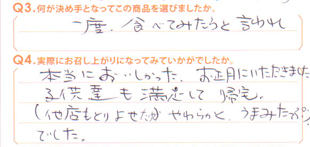 Q3.何が決め手となってこの商品を選びましたか。
一度、食べてみたらと言われ
Q4.実際にお召し上がりになってみていかがでしたか。
本当においしかった。お正月にいただきました
子供達も満足して帰宅。
(他店もとりよせたが) やわらかと、うまみたっぷり
でした。